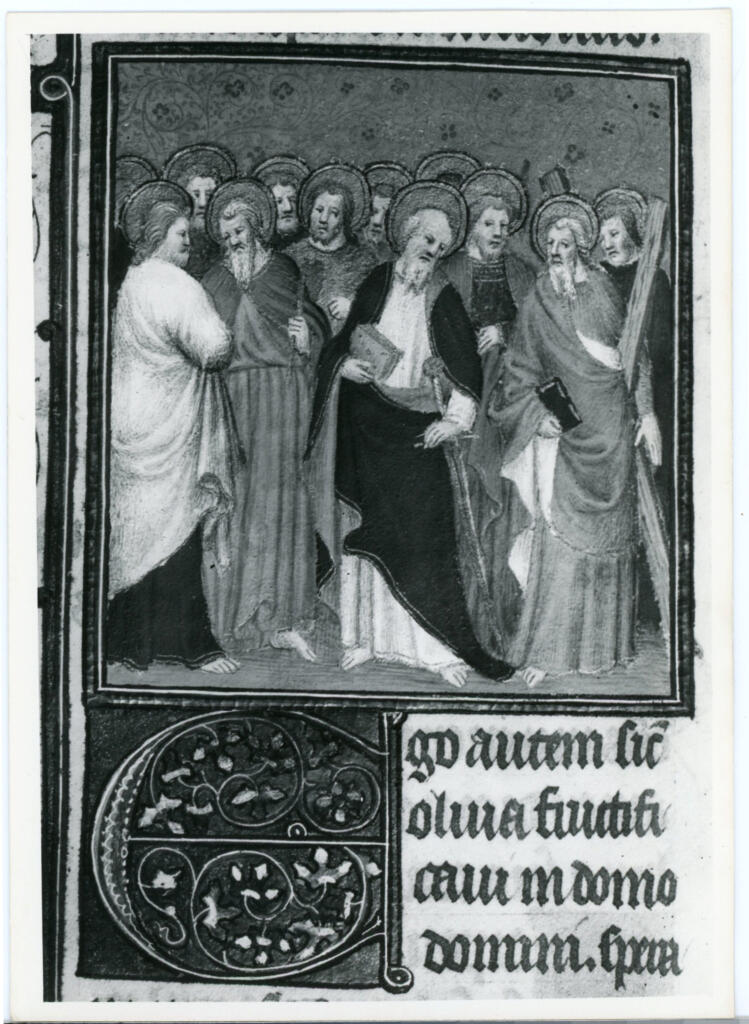 Ego autem sic̄
oliua fructifi
caui in domo
domini. spera